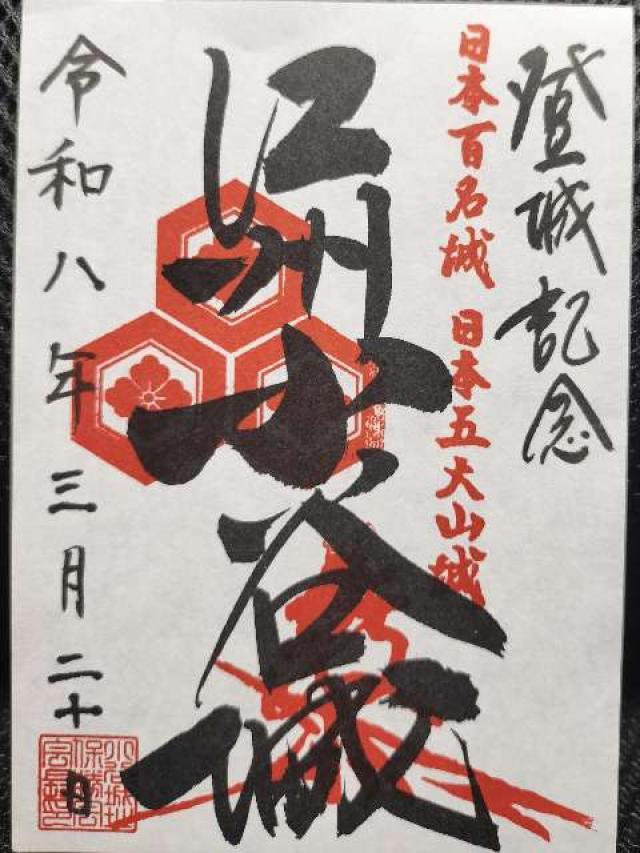 登城記念
日本百名城 日本五大山城
江州小谷城
令和八年三月二十日